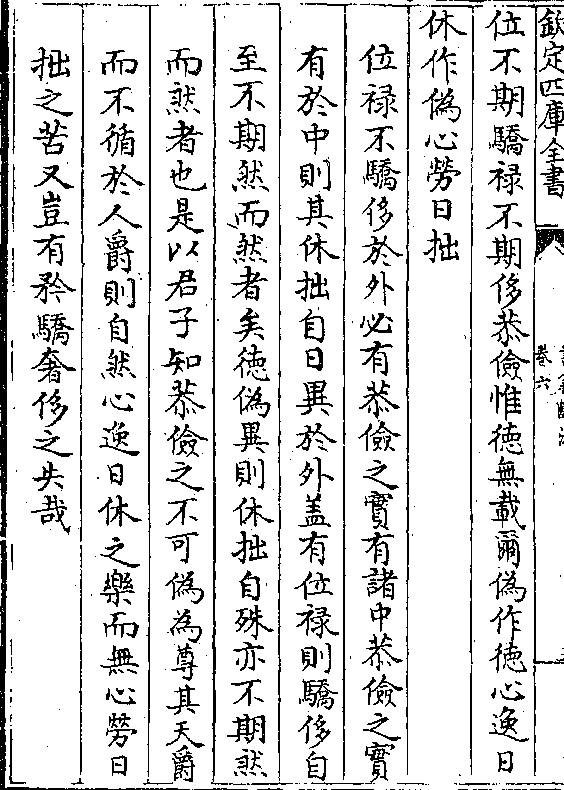 欽定四庫全書
卷六
位不期驕祿不期侈恭儉惟徳無載爾偽作徳心逸日
休作偽心勞日拙
位祿不驕侈於外必有恭儉之實有諸中恭儉之實
有於中則其休拙自日異於外盖有位祿則驕侈自
至不期然而然者矣徳偽異則休拙自殊亦不期然
而然者也是以君子知恭儉之不可偽為尊其天爵
而不循於人爵則自然心逸日休之樂而無心勞日
拙之苦又豈有矜驕奢侈之失哉